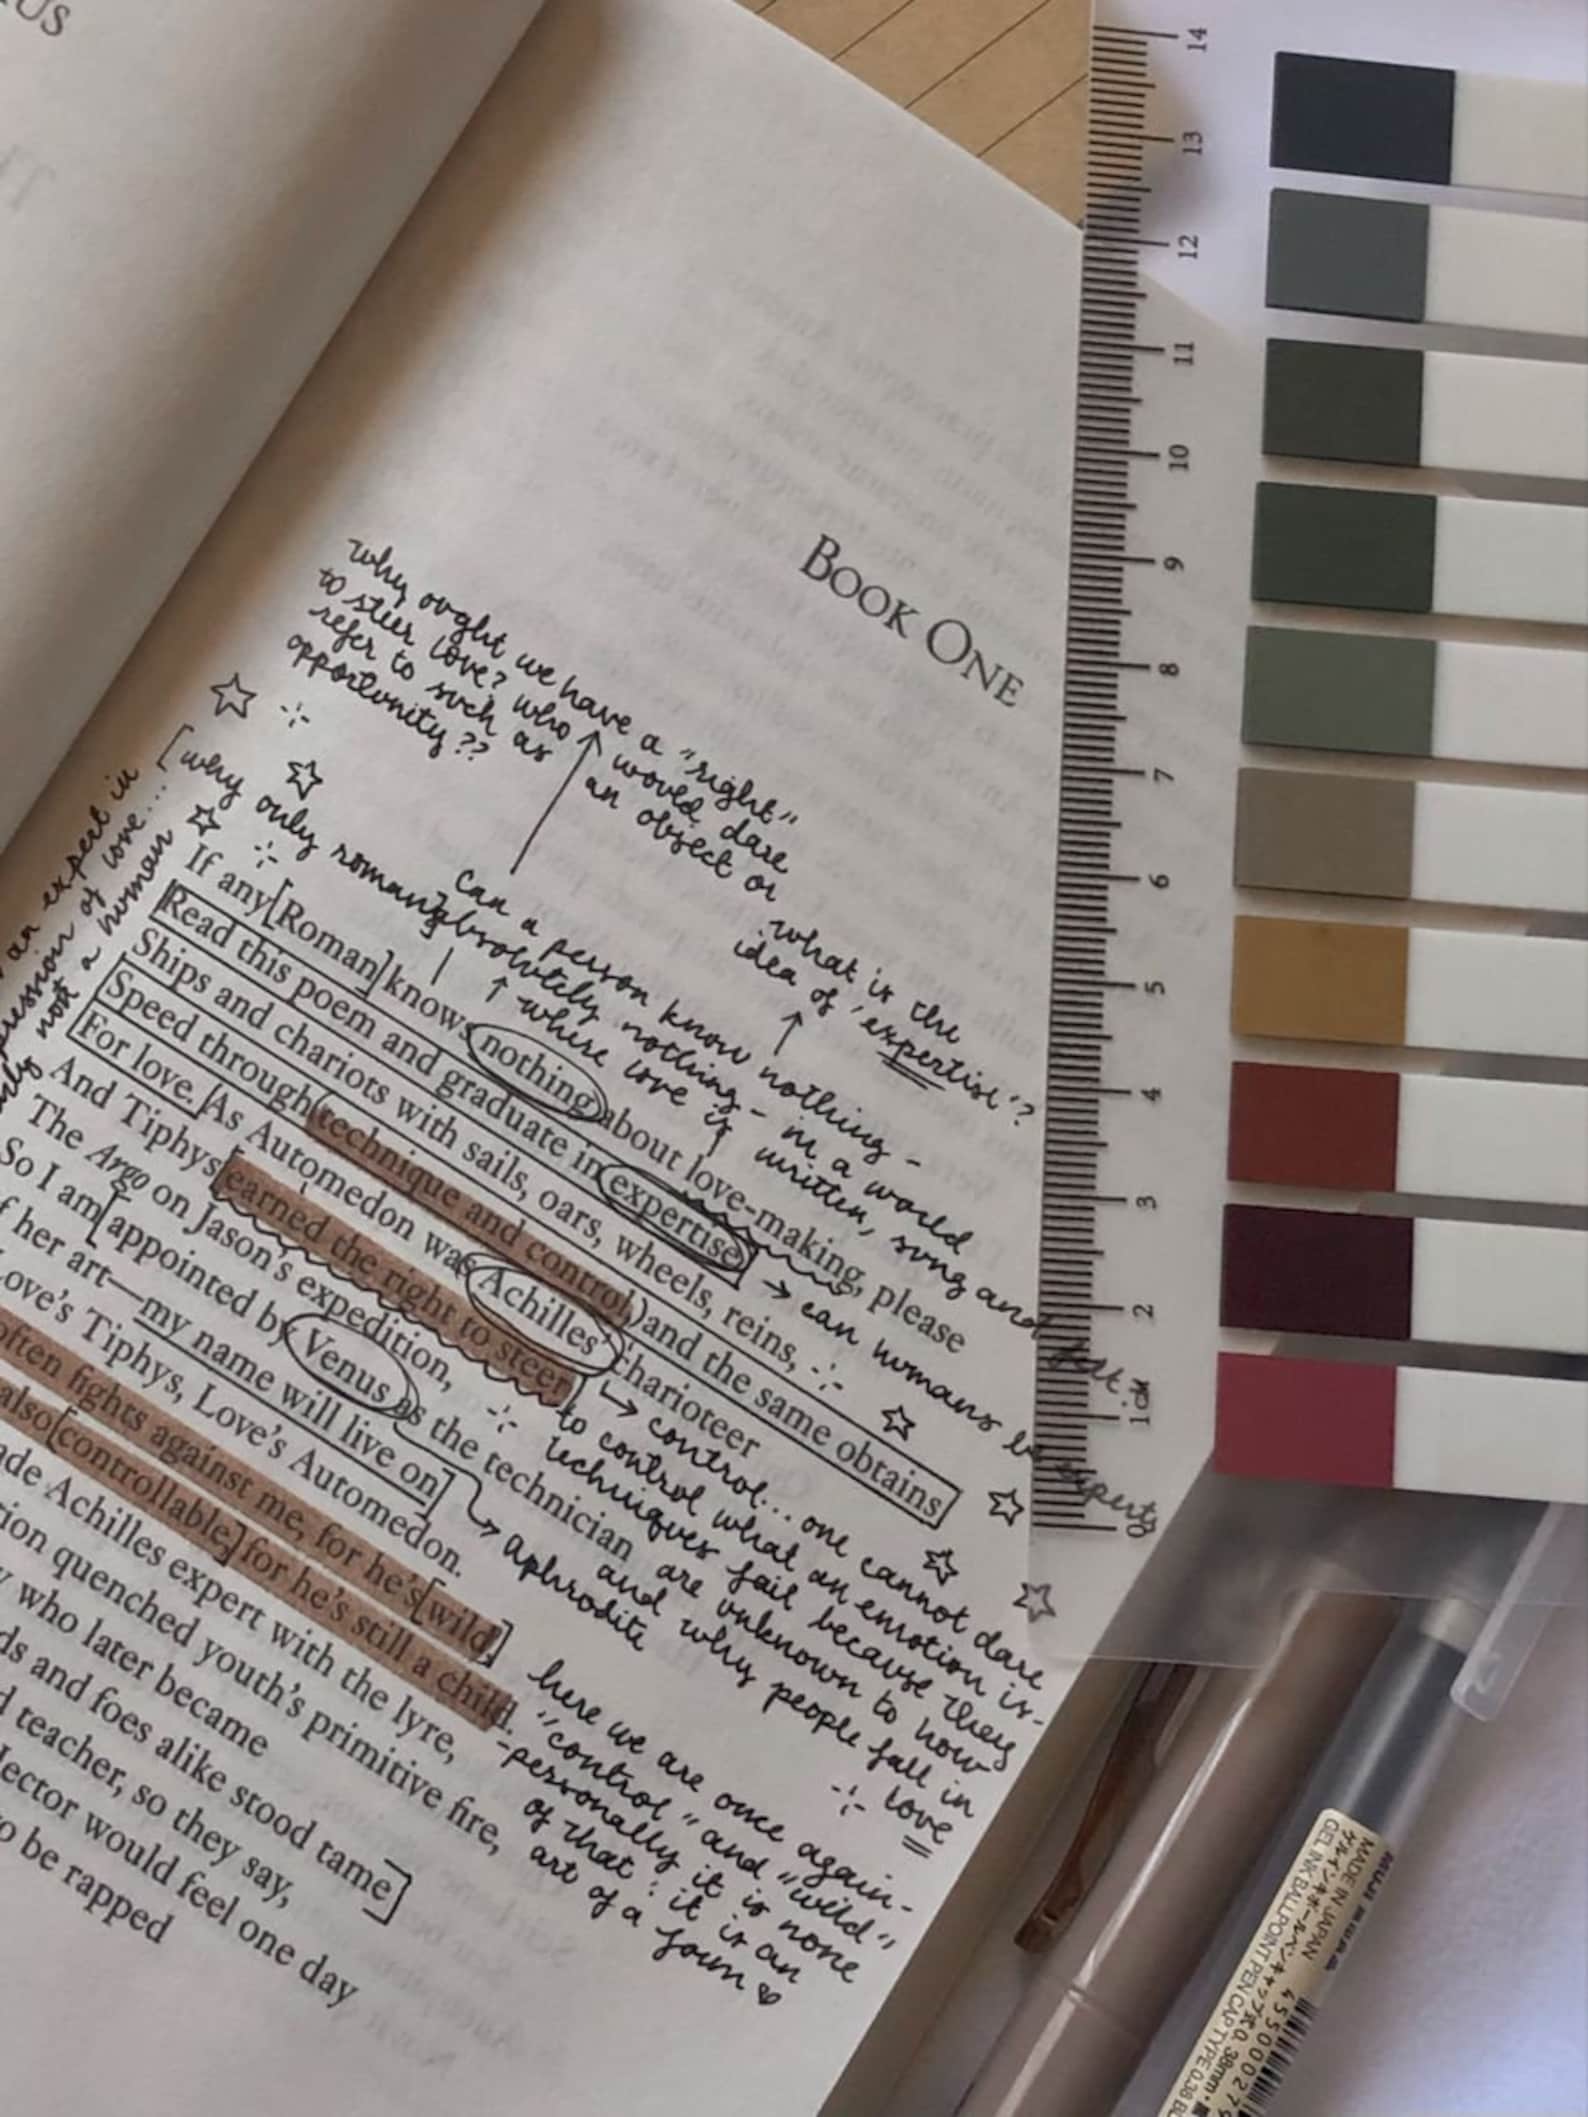 BOOK ONE
why ought we have a "right"
to steer love? who would dare
refer to such as an object or
opportunity??
[why only roman]
Can a person know nothing -
absolutely nothing - in a world
where love is written, sung and
what is the
idea of 'expertise'?
an expert in
of love...
not a woman
If any [Roman] knows nothing about love-making, please
Read this poem and graduate in expertise.
Ships and chariots with sails, oars, wheels, reins,
Speed through technique and control, and the same obtains
For love. As Automedon was Achilles' charioteer
And Tiphys earned the right to steer
The Argo on Jason's expedition,
So I am appointed by Venus as the technician
her art—my name will live on
Love's Tiphys, Love's Automedon.
often fights against me, for he's wild
also controllable, for he's still a child.
Achilles expert with the lyre,
quenched youth's primitive fire,
who later became
and foes alike stood tame
teacher, so they say,
Hector would feel one day
to be rapped
→ can womans be
expert
control... one cannot dare
to control what an emotion is -
techniques fail because they
are unknown to how
and why people fall in
love
aphrodite
here we are once again -
"control" and "wild"
- personally it is none
of that: it is an
art of a form
14
13
12
11
10
9
8
7
6
5
4
3
2
1
0
MUJI 無印良品
MADE IN JAPAN
ゲルインキボールペンキャップ式0.38mm
GEL INK BALLPOINT PEN CAP TYPE 0.38